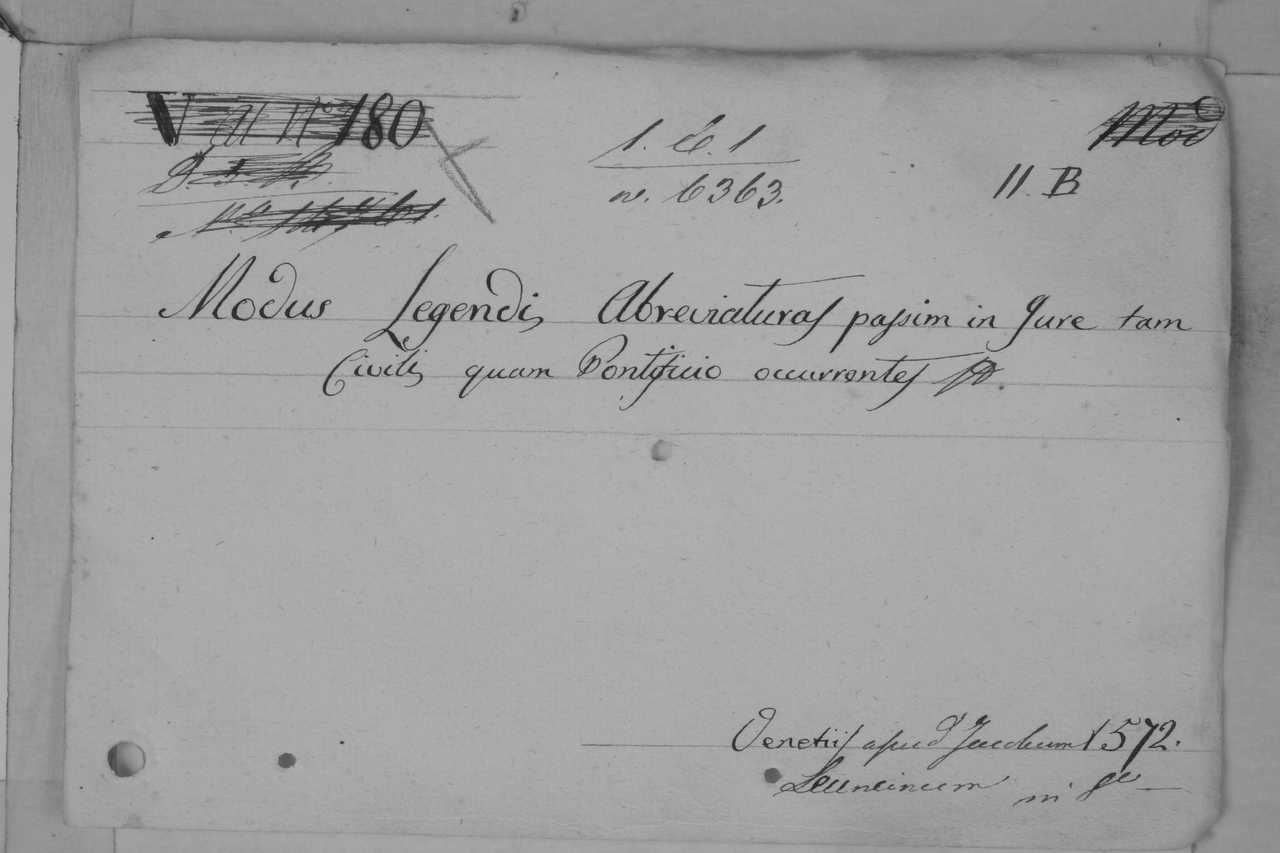 V a N° 180
1. C. 1
n. 6363.
II. B
Mod
Modus Legendi Abreviaturas passim in Jure tam
Civili quam Pontificio occurrentes
Venetiis apud Jacobum 1572.
in 8°